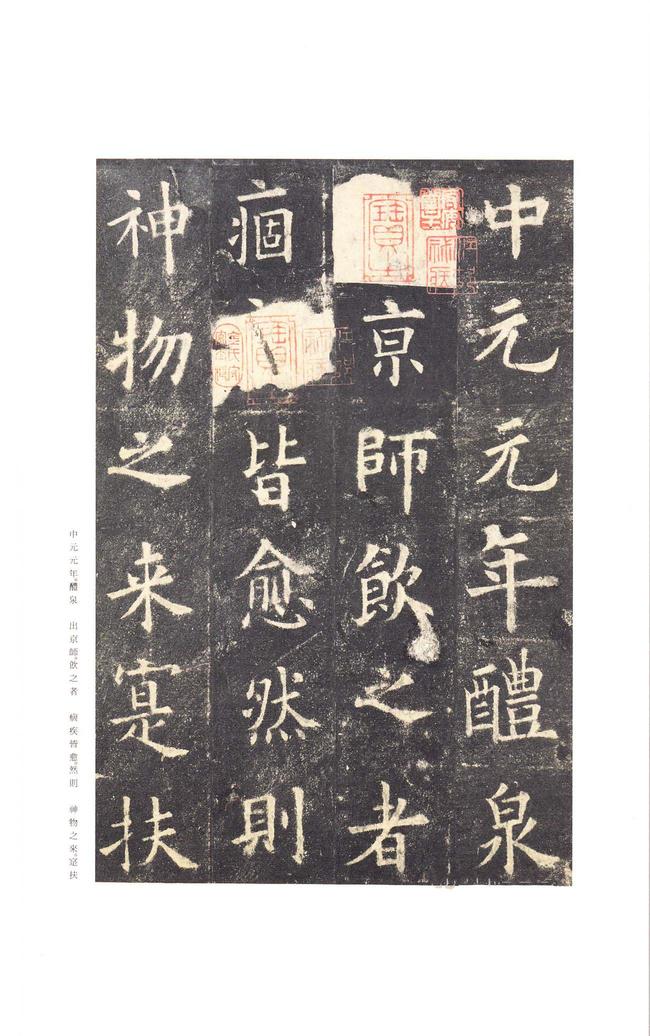 中元元年醴泉
京師飲之者
痼皆愈然則
神物之来寔扶
中元元年。醴泉 出京師。飲之者 痼疾皆愈。然則 神物之來。寔扶